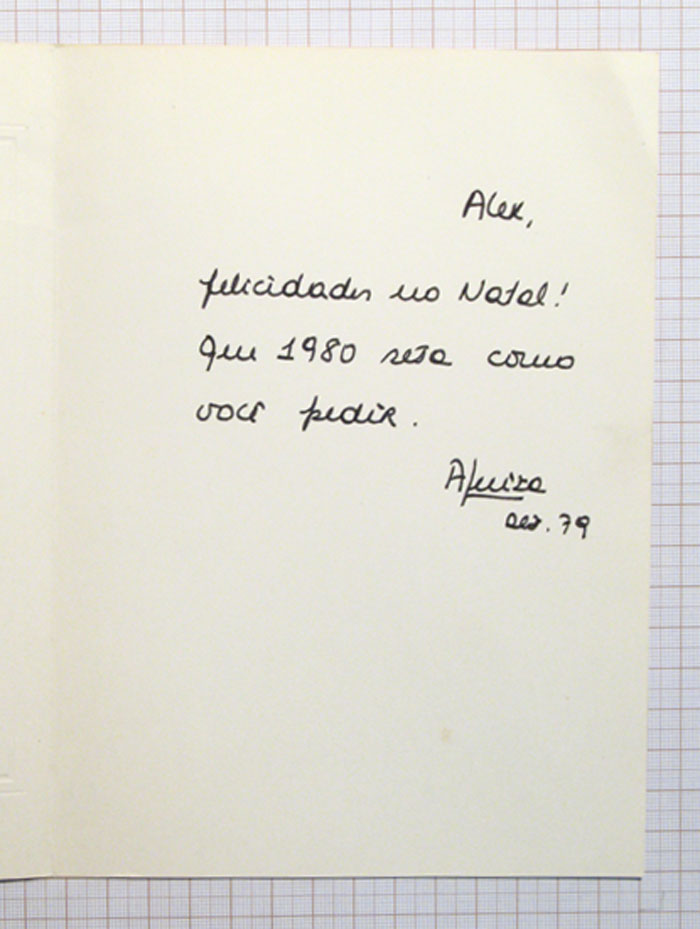 Alex,
felicidades no Natal!
Que 1980 seja como
você pedir.
dez. 79